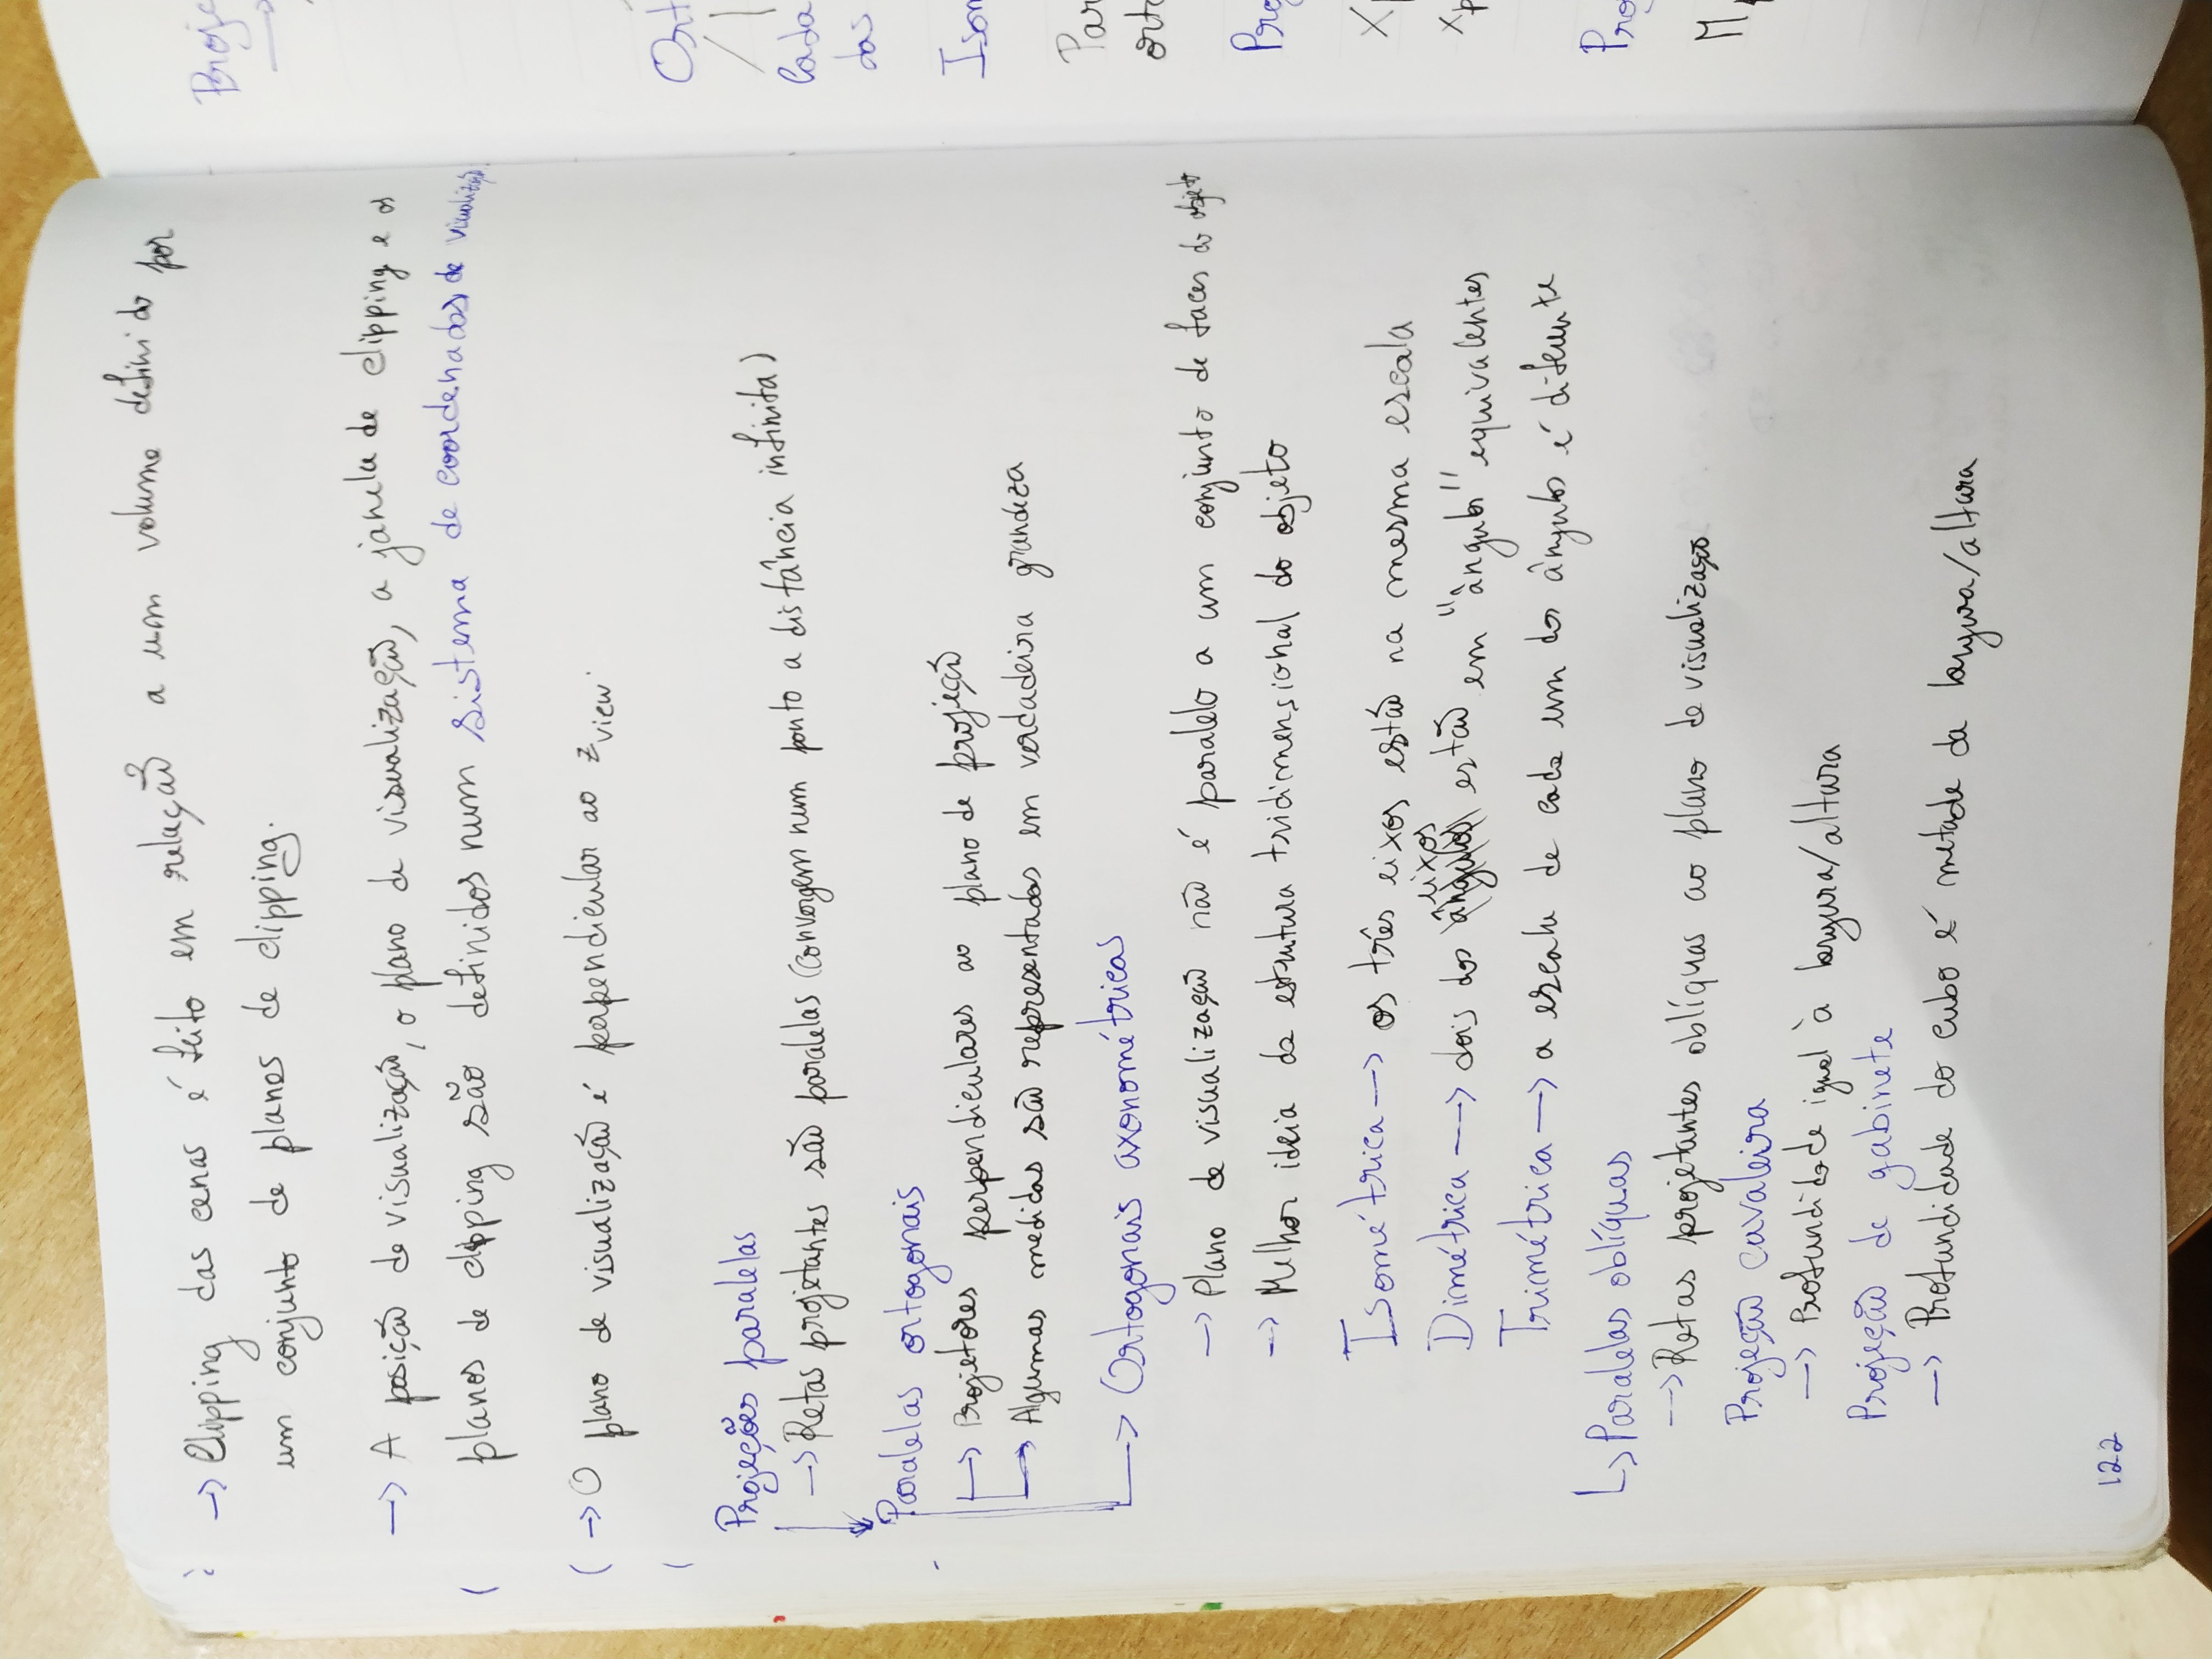 → Clipping das cenas é feito em relação a um volume definido por
um conjunto de planos de clipping.
→ A posição de visualização, o plano de visualização, a janela de clipping e os
planos de clipping são definidos num sistema de coordenadas de visualização.
→ O plano de visualização é perpendicular ao z view.
Projeções paralelas
→ Retas projetantes são paralelas (convergem num ponto a distância infinita)
Paralelas ortogonais
→ Projetores perpendiculares ao plano de projeção
→ Algumas medidas são representadas em verdadeira grandeza
→ Ortogonais axonométricas
→ Plano de visualização não é paralelo a um conjunto de faces do objeto
→ Melhor ideia da estrutura tridimensional do objeto
Isométrica → os três eixos estão na mesma escala
Dimétrica → dois dos eixos estão em "ângulos" equivalentes
Trimétrica → a escala de cada um dos ângulos é diferente
↳ Paralelas oblíquas
→ Retas projetantes oblíquas ao plano de visualização
Projeção cavaleira
→ Profundidade igual à largura/altura
Projeção de gabinete
→ Profundidade do cubo é metade da largura/altura
122
Proje
Ort
Cada
das
Isom
Par
orto
Pro
Pro
M